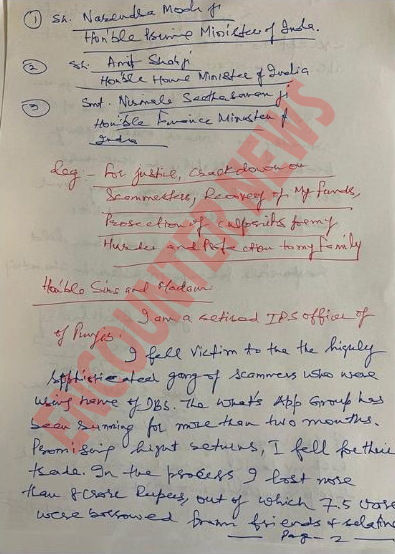 ① Sh. Narendra Modi ji
Hon'ble Prime Minister of India.
② Sh. Amit Shah ji
Hon'ble Home Minister of India
③ Smt. Nirmala Seetharaman ji
Hon'ble Finance Minister of
India
Reg – For justice, Crackdown on
Scammesters, Recovery of My Funds,
Prosecution of culprits for my
Murder and Protection to my Family
Hon'ble Sirs and Madam
I am a retired IPS officer of
of Punjab.
I fell victim to the the highly
sophisticated gang of scammers who were
using name of DBS. The What's App Group has
been running for more than two months.
Promising hight returns, I fell for their
trade. In the process I lost more
than 8 crore Rupees, out of which 7.5 crore
were borrowed from friends & relative
Page - 2
ENCOUNTER NEWS